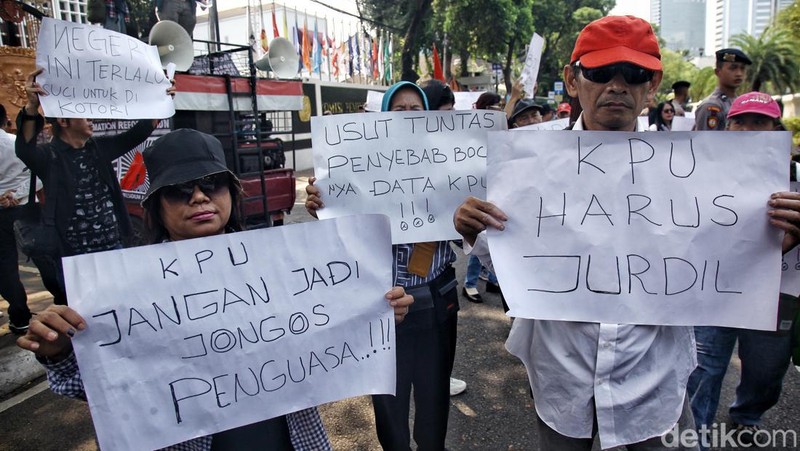 NEGERI
INI TERLALU
SUCI UNTUK DI
KOTORI
USUT TUNTAS
PENYEBAB BOC
NYA DATA KPU
!!!
KPU
HARUS
JURDIL
KPU
JANGAN JADI
JONGOS
PENGUASA...!!!
detikcom